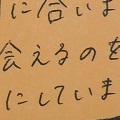 に合いま
会えるのを
にしていま